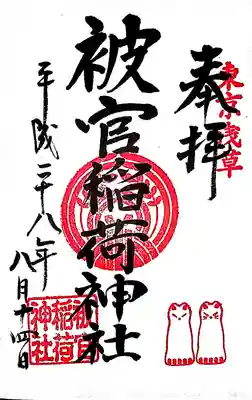 東京浅草
奉拝
被官稲荷神社
平成二十八年
八月十四日
被官
稲荷
神社